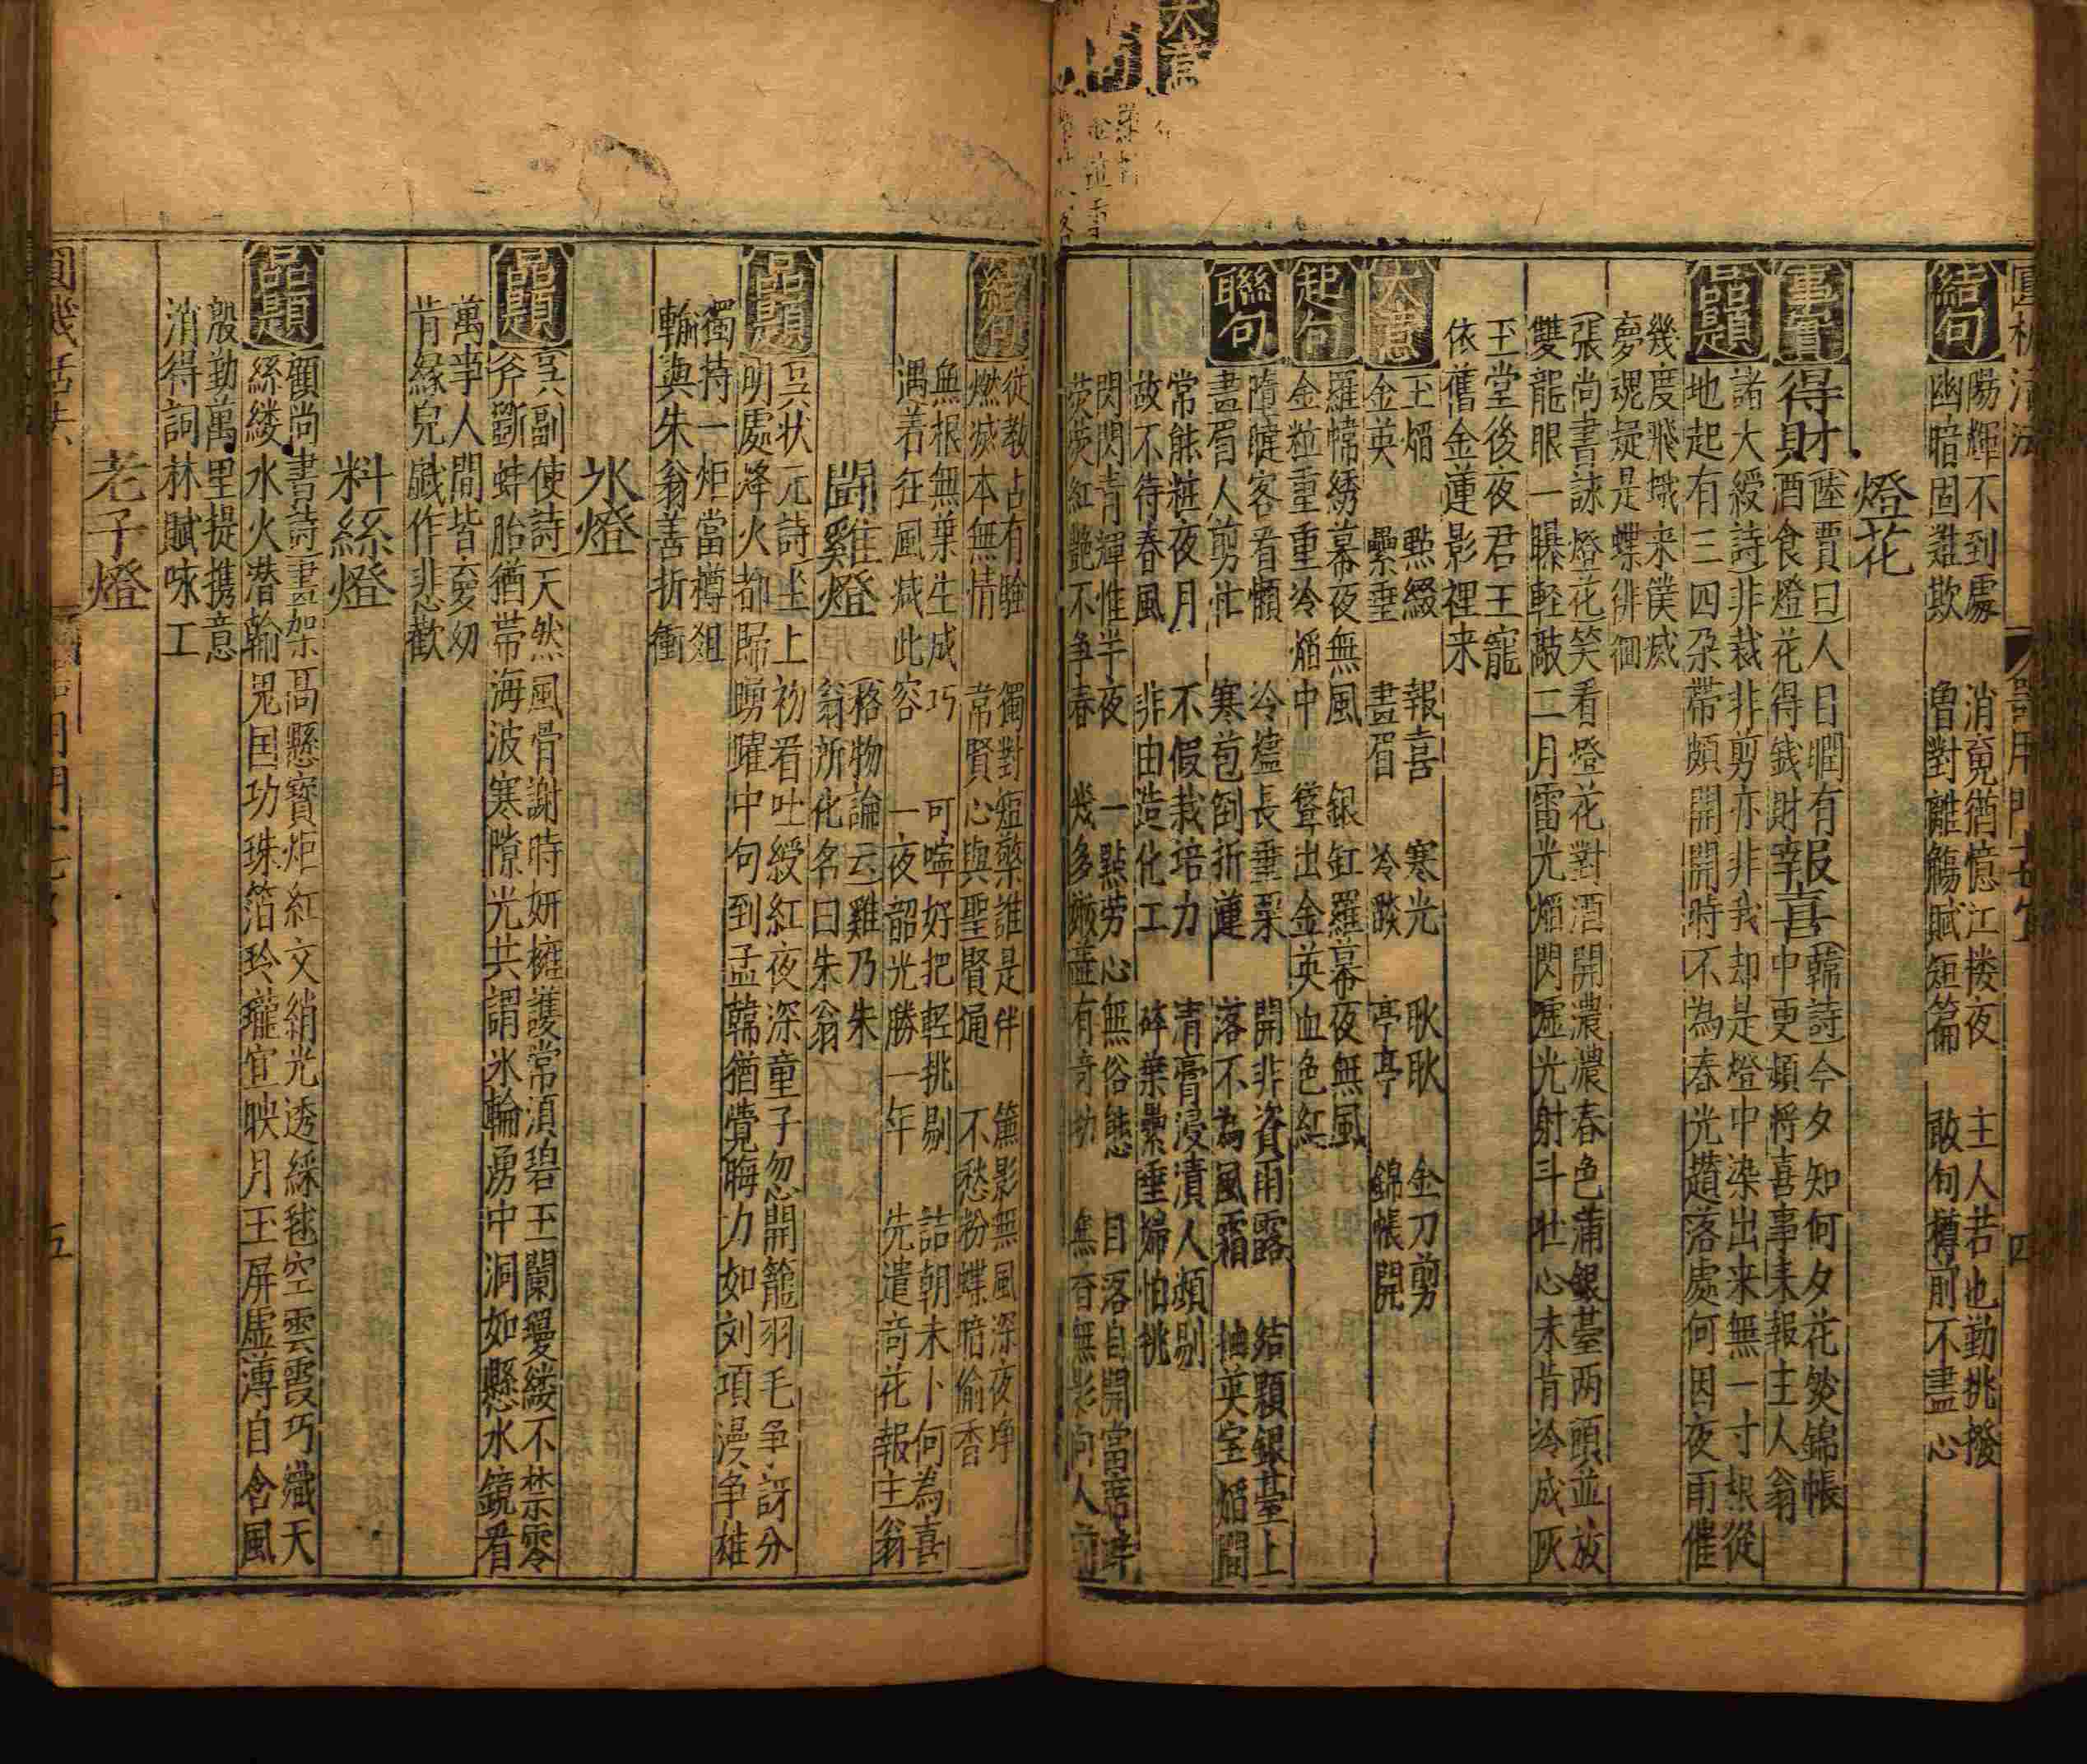 結句
陽輝不到處 消夜猶憶江楼夜 主人若也勤挑撥
幽暗固難欺 魯對離觴賦短篇 敢向樽前不盡心
燈花
事實
得財
陸賈曰人目瞤有
酒食燈花得錢財
報喜
韓詩今夕知何夕花燄錦帳
中更煩將喜事来報主人翁
品題
諸大綬詩非裁非剪亦非我却是燈中染出来無一寸根從
地起有三四朶帶頗開開時不為春光趲落處何因夜雨催
幾度飛蛾来僕㓕
夢魂疑是蝶徘徊
張尚書詠燈花笑看燈花對酒開濃濃春色蒲銀䑓两頭並放
雙龍眼一曝軽敲二月雷光熖閃虛光射斗壮心未肯冷成灰
玉堂後夜君王寵
依舊金蓮影裡来
大意
玉熖 點綴 報喜 寒光 耿耿 金刀剪
金英 纍垂 畫眉 冷燄 亭亭 錦帳開
起句
羅幃綉幕夜無風 銀缸羅幕夜無風
金粒重重冷熖中 聳出金英血色紅
聯句
隋暁客看懶 冷燼長垂粟 開非資雨露 結顆銀䑓上
畫眉人剪忙 寒苞倒折蓮 落不為風霜 抽英宝熖間
常能粧夜月 不假栽培力 清膏浸漬人頻剔
故不待春風 非由造化工 碎葉纍垂婦怕挑
閃閃青輝惟半夜 一點芳心無俗態 目落自開當
荧荧紅艶不争春 幾多嫩蘂有竒功 無香無影向人
結句
従教占有驗 獨對短檠誰是伴 簾影無風深夜
燃滅本無情 常賢心與聖賢通 不愁粉蝶暗偷香
無根無葉生成巧 可噾好把軽挑剔 詰朝未卜何為喜
遇着狂風㓕此容 一夜韶光勝一年 先遣竒花報主翁
鬪雞燈
格物論云雞乃朱
翁所化名曰朱翁
品題
吴状元詩坐上初看吐綬紅夜深童子忽開籠羽毛争訝分
明處烽火都歸䁱矅中句到孟韓猶覺晦力如刘項漫争雄
獨持一炬當樽俎
輸與朱翁善折衝
氷燈
品題
吴副使詩天然風骨謝時妍擁護常湏碧玉闌縵緩不禁零
斧斷蚌胎猶帶海波寒隙光共謂氷輪湧中洞如懸水鏡看
萬事人間皆夏㓜
肯緣兒戯作悲歡
料絲燈
品題
顧尚書詩畫架髙懸寳炬紅文綃光透綵毬空雲霞巧熾天
絲縷水火潜輸鬼囯功珠箔玲瓏宜映月玉屏虚薄自含風
殷勤萬里提携意
消得詞林賦咏工
老子燈
五